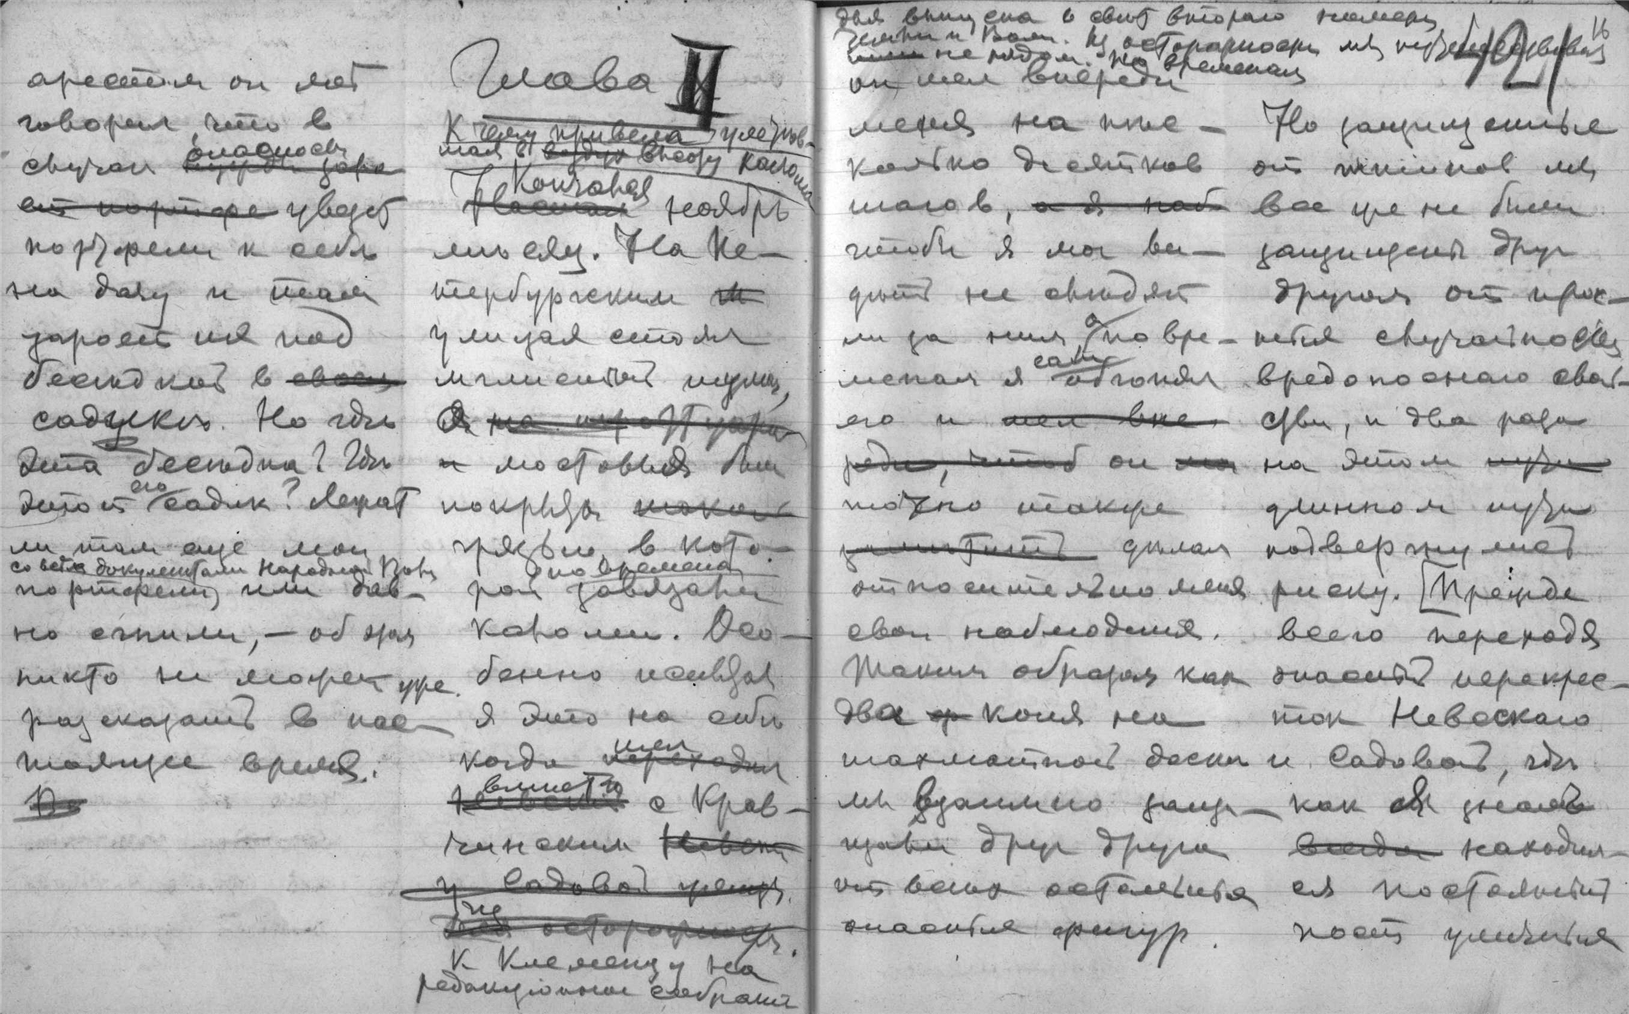 арестом он мог
говорил, что в
случае опасности
увезет
портфели к себе
на дачу и там
зароет их под
беседкой в
садике. Но где
эта беседка? Где
этот его садик? Лежат
ли там еще мои
со всеми документами Народной Воли
портфели, или дав-
но сгнили, — об этом
никто не может уже
разсказать в нас-
тоящее время.
Глава II
К чему привела улетев-
шая в воздух калоша
Кончался ноябрь
месяц. На Пе-
тербургских
улицах стоял
мглистый туман,
а мостовыя были
покрыты
грязью, в кото-
рой по временам завязали
калоши. Осо-
бенно испытал
я это на себе
когда шел
вместе с Крав-
чинским
К Клеменцу на
редакционное собрание
для выпуска в свет второго номера
Земли и Воли. Из осторожности мы
не рядом. По временам
он шел впереди
меня на нес-
колько десятков
шагов,
чтобы я мог ви-
деть не следят
ли за ним, а по вре-
менам я сам обгонял
его и
он
точно также
делал
относительно меня
свои наблюдения.
Таким образом как
два коня на
шахматной доске
мы взаимно защи-
щали друг друга
от всех остальных
опасных фигур.
121
16
Но защищенные
от шпионов мы
все же не были
защищены друг
другом от проч-
их случайностей
вредоноснаго свой-
ства, и два раза
на этом
длинном пути
подверглись
риску. [Прежде
всего переходя
опасный перекрес-
ток Невскаго
и Садовой, где
как я знал
находил-
ся постоянный
пост уличных